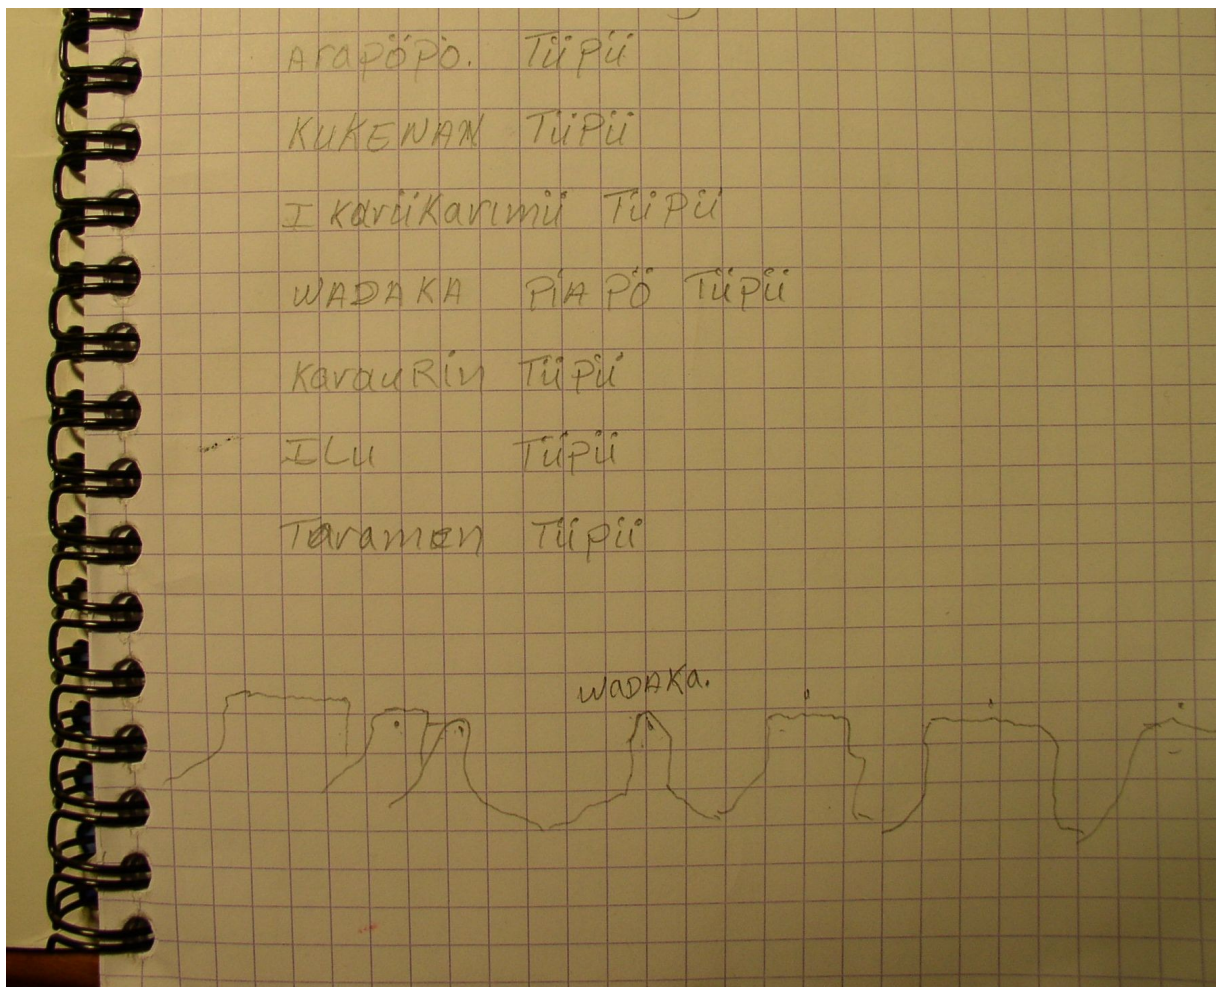 Arapöpö. Tüpü
KUKENAN Tüpü
I karüKarimü Tüpü
WADAKA PiAPö Tüpü
KarauRin Tüpü
ILu Tüpü
Taramen Tüpü
WaDAKa.